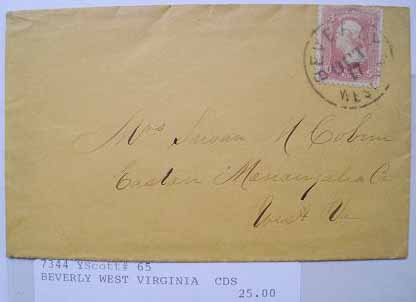 BEVERLY
OCT
17
WES
Mrs Susan N Coburn
Easton Monongalia Co
West Va
7344 YScott# 65
BEVERLY WEST VIRGINIA CDS
25.00